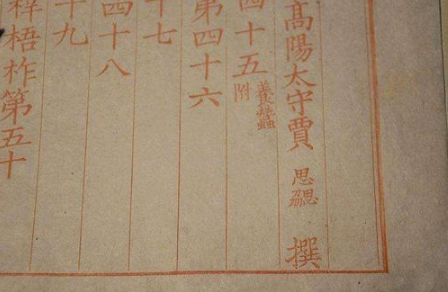 高陽太守賈思勰撰
四十五養蠶附
第四十六
十七
四十八
十九
梓梧柞第五十